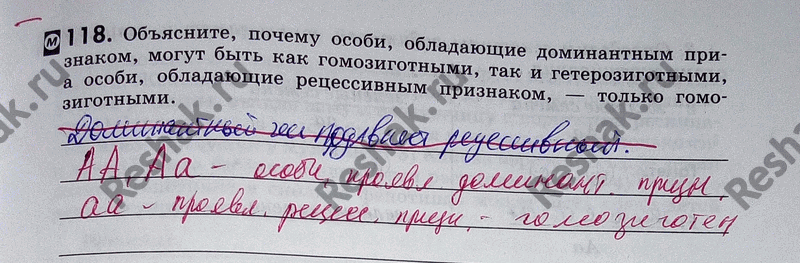 М 118. Объясните, почему особи, обладающие доминантным при-
знаком, могут быть как гомозиготными, так и гетерозиготными,
а особи, обладающие рецессивным признаком, — только гомо-
зиготными.
Доминантный ген подавляет рецессивный.
АА, Аа - особи, проявл доминант. призн.
аа - проявл. рецес. призн. - гомозиготен
Reshak.ru
Reshak.ru
Reshak.ru
Reshak.ru
Reshak.ru